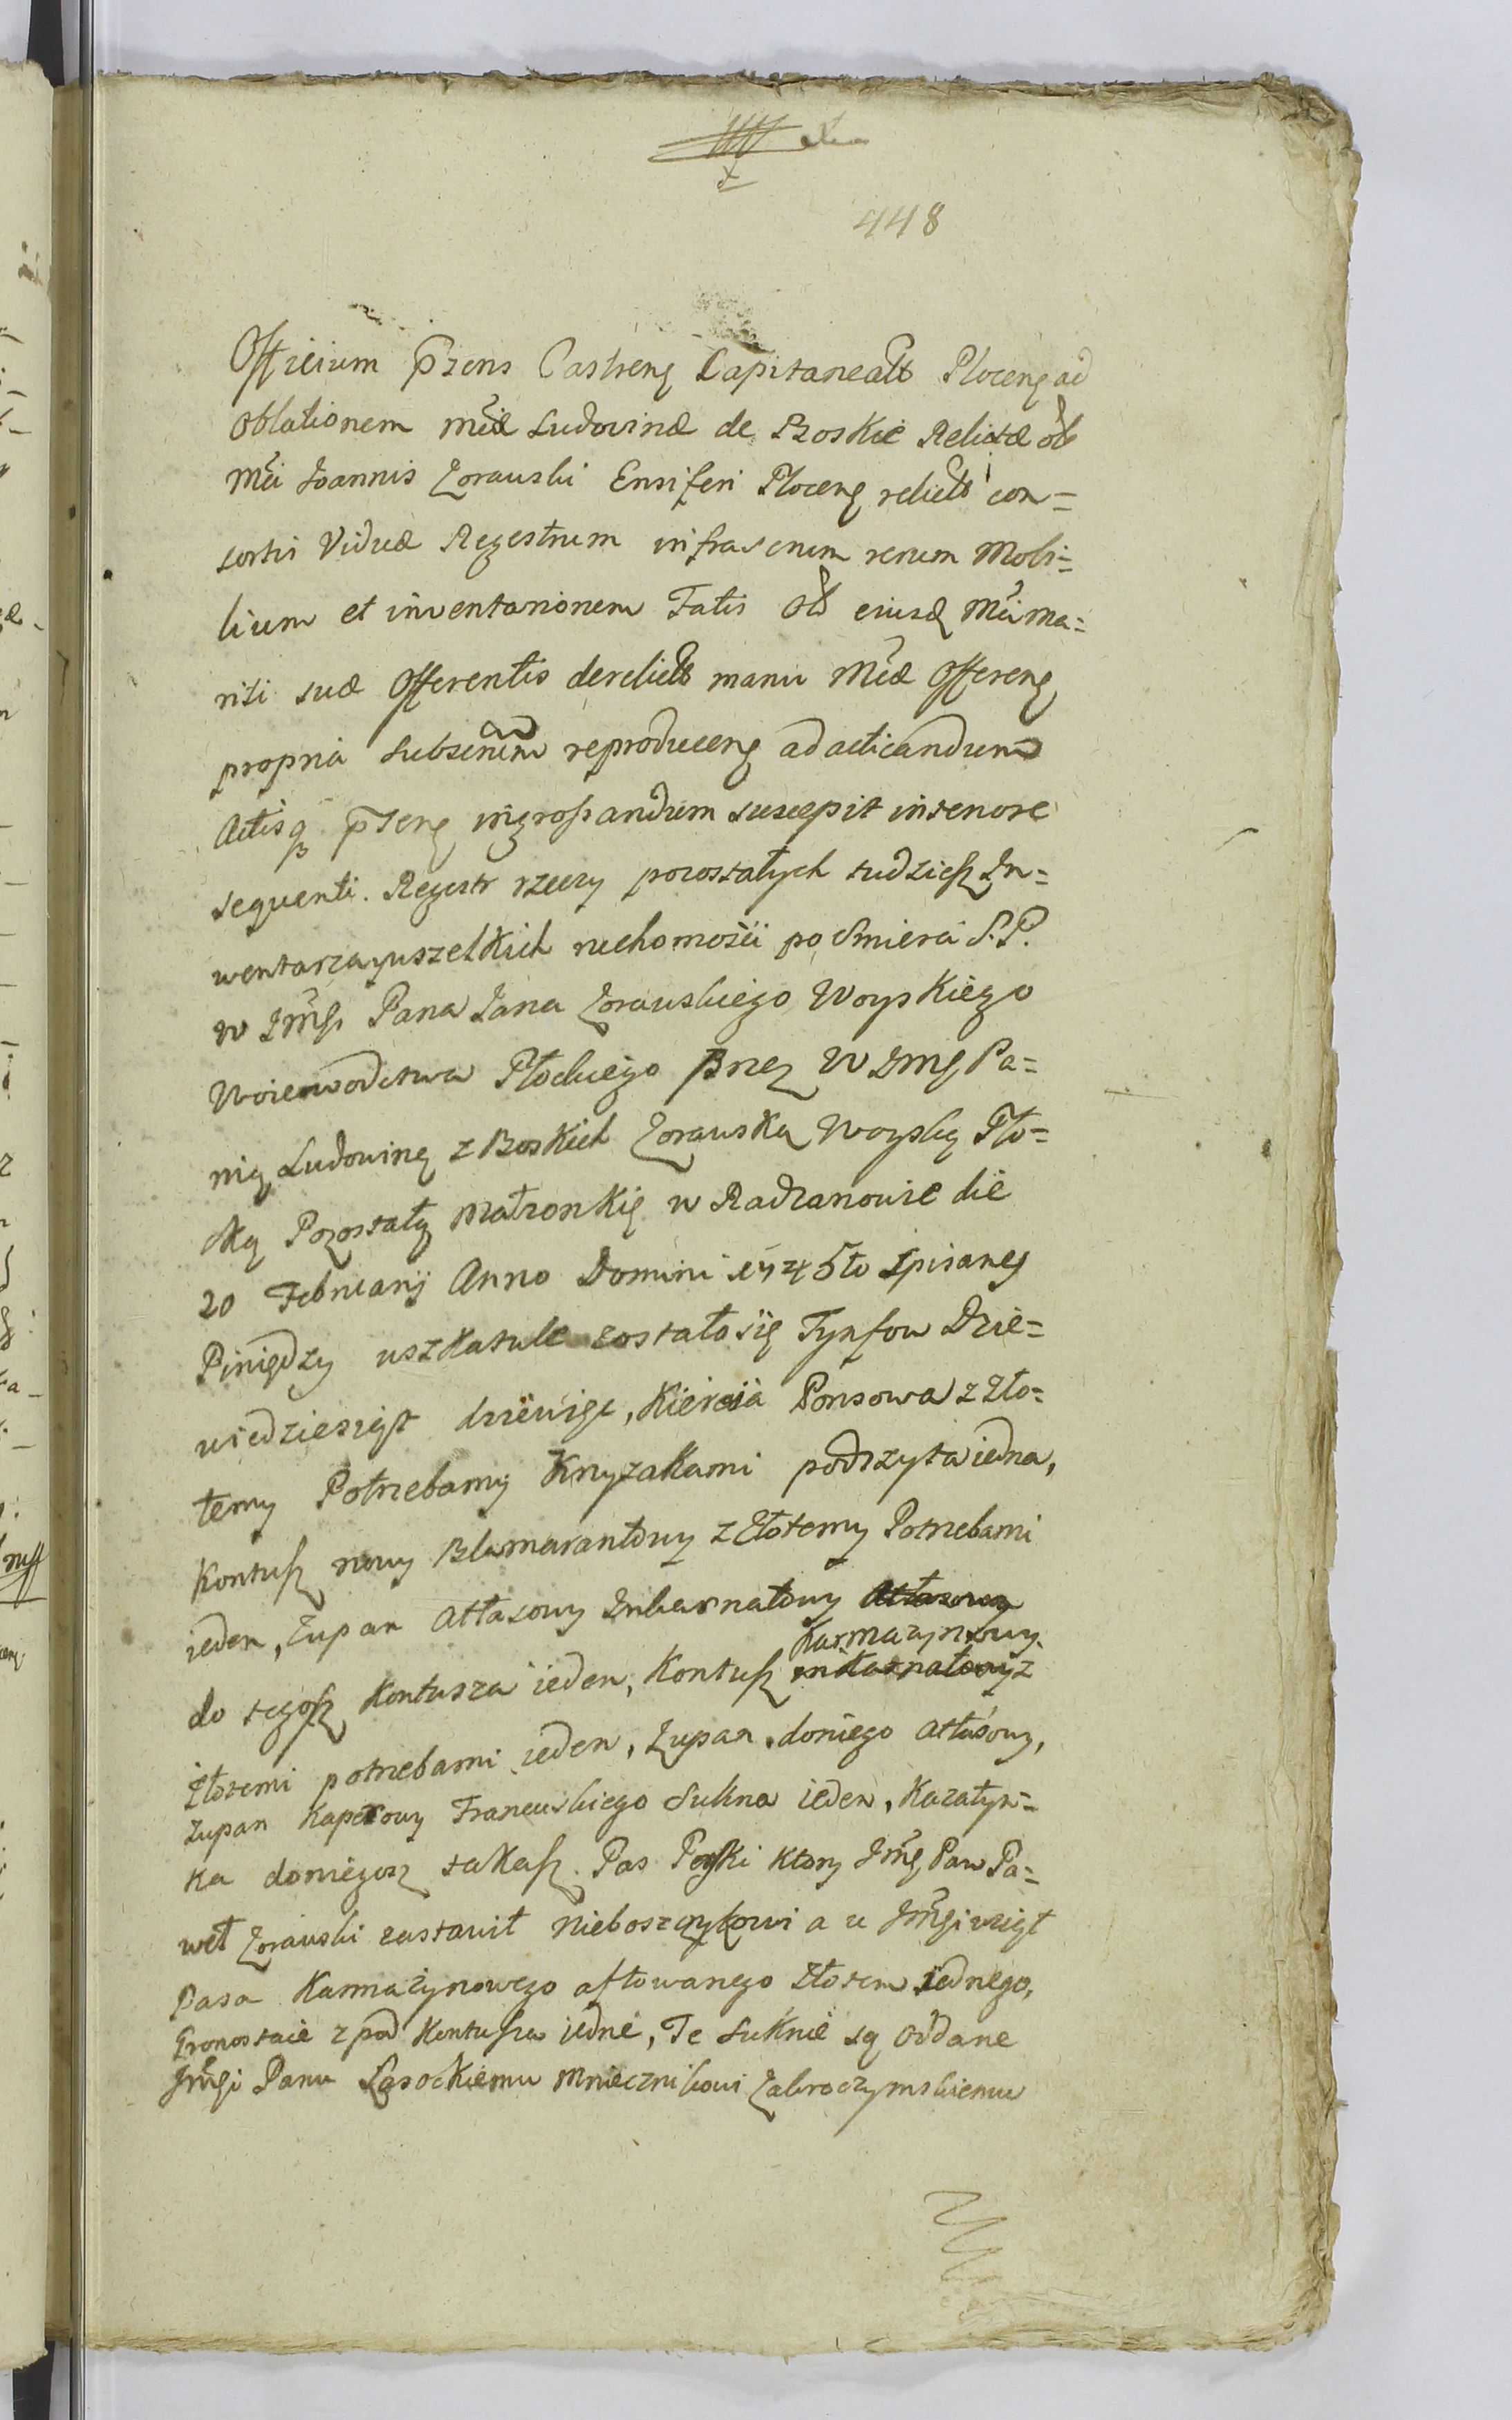 448
Officium p̄zens Castreng Capitaneale Ploceng ad
oblationem Mc̄æ Ludovinæ de Boskie Relictæ ol̄
Mc̄i Joannis Zorauski Ensiferi Ploceng relictæ con=
sortis Viduæ Regestrum infrascrium rerum Mobi=
lium et inventarionem Fatis ol̄ eiusd Mc̄i Ma=
riti suæ Offerentis derelict manu Mc̄æ Offereng
propria Subscrium reproduceng ad acticandum
Actisq p̄zeng ingrossandum suscepit in tenore
sequenti. Regestr rzeczy pozostałych tudziesz In=
wentarza wszelkich ruchomości po Smierci S.P.
W Jm̄ści Pana Jana Zorauskiego Woyskiego
Woiewodctwa Płockiego Przez W Jmę Pa=
nią Ludowinę z Boskich Zorauską Woyską Pło=
cką Pozostałą Małzonkię w Radzanowie die
20 Februarij Anno Domini 1745to Spisany
Piniędzy w szkatule zostało się Tynfow Dzie=
wiedziesiąt dziewięc, Kiereia Ponsowa z Zło=
temy Potrzebamy Krzyzakami podszyta iedna,
Kontusz nowy Blamarantowy z Złotemy Potrzebami
ieden, Zupan Atłasowy Inkarnatowy Atłasowy
do tegosz Kontusza ieden, Kontusz inkarnatowy z
Karmazynowy
Złotemi potrzebami ieden, Zupan do niego atłasowy,
Zupan Kaperowy Francuskiego Sukna ieden, Kazatyn=
ka do niegosz takasz. Pas Perski ktory Jm̄ę Pan Pa=
weł Zorauski zastawił Nieboszczykowi a u Jm̄ści wziął
Pasa Karmazynowego aftowanego Złotem iednego,
Gronostaie z pod Kontusza iedne, Te Suknie są Oddane
Jm̄ści Panu Lasockiemu Miecznikowi Zakroczymskiemu